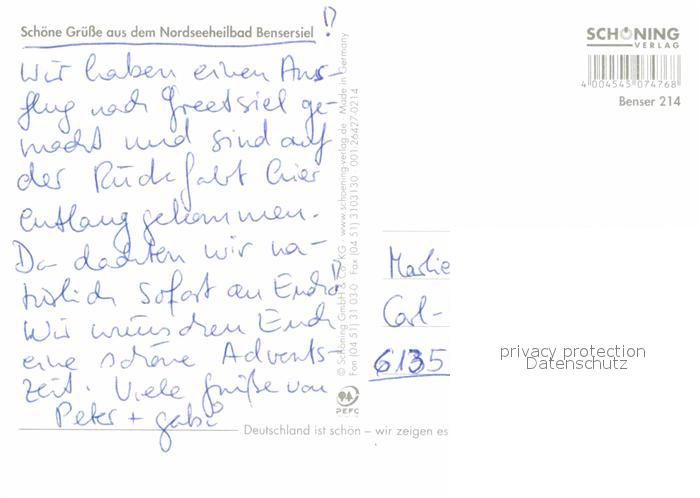 Schöne Grüße aus dem Nordseeheilbad Bensersiel !?
Wir haben einen Aus-
flug nach Greetsiel ge-
macht und sind auf
der Rückfahrt hier
entlang gekommen.
Da dachten wir na-
türlich sofort an Euch!!
Wir wünschen Euch
eine schöne Advents-
zeit. Viele Grüße von
Peter + Gabi
© Schöning GmbH & Co. KG · www.schoening-verlag.de Made in Germany
Fon (04 51) 31 03-0 Fax (04 51) 3103130 001-26427-0214
PEFC
SCHÖNING
VERLAG
4 004545 074768
Benser 214
Carl-
6135
privacy protection
Datenschutz
Deutschland ist schön – wir zeigen es